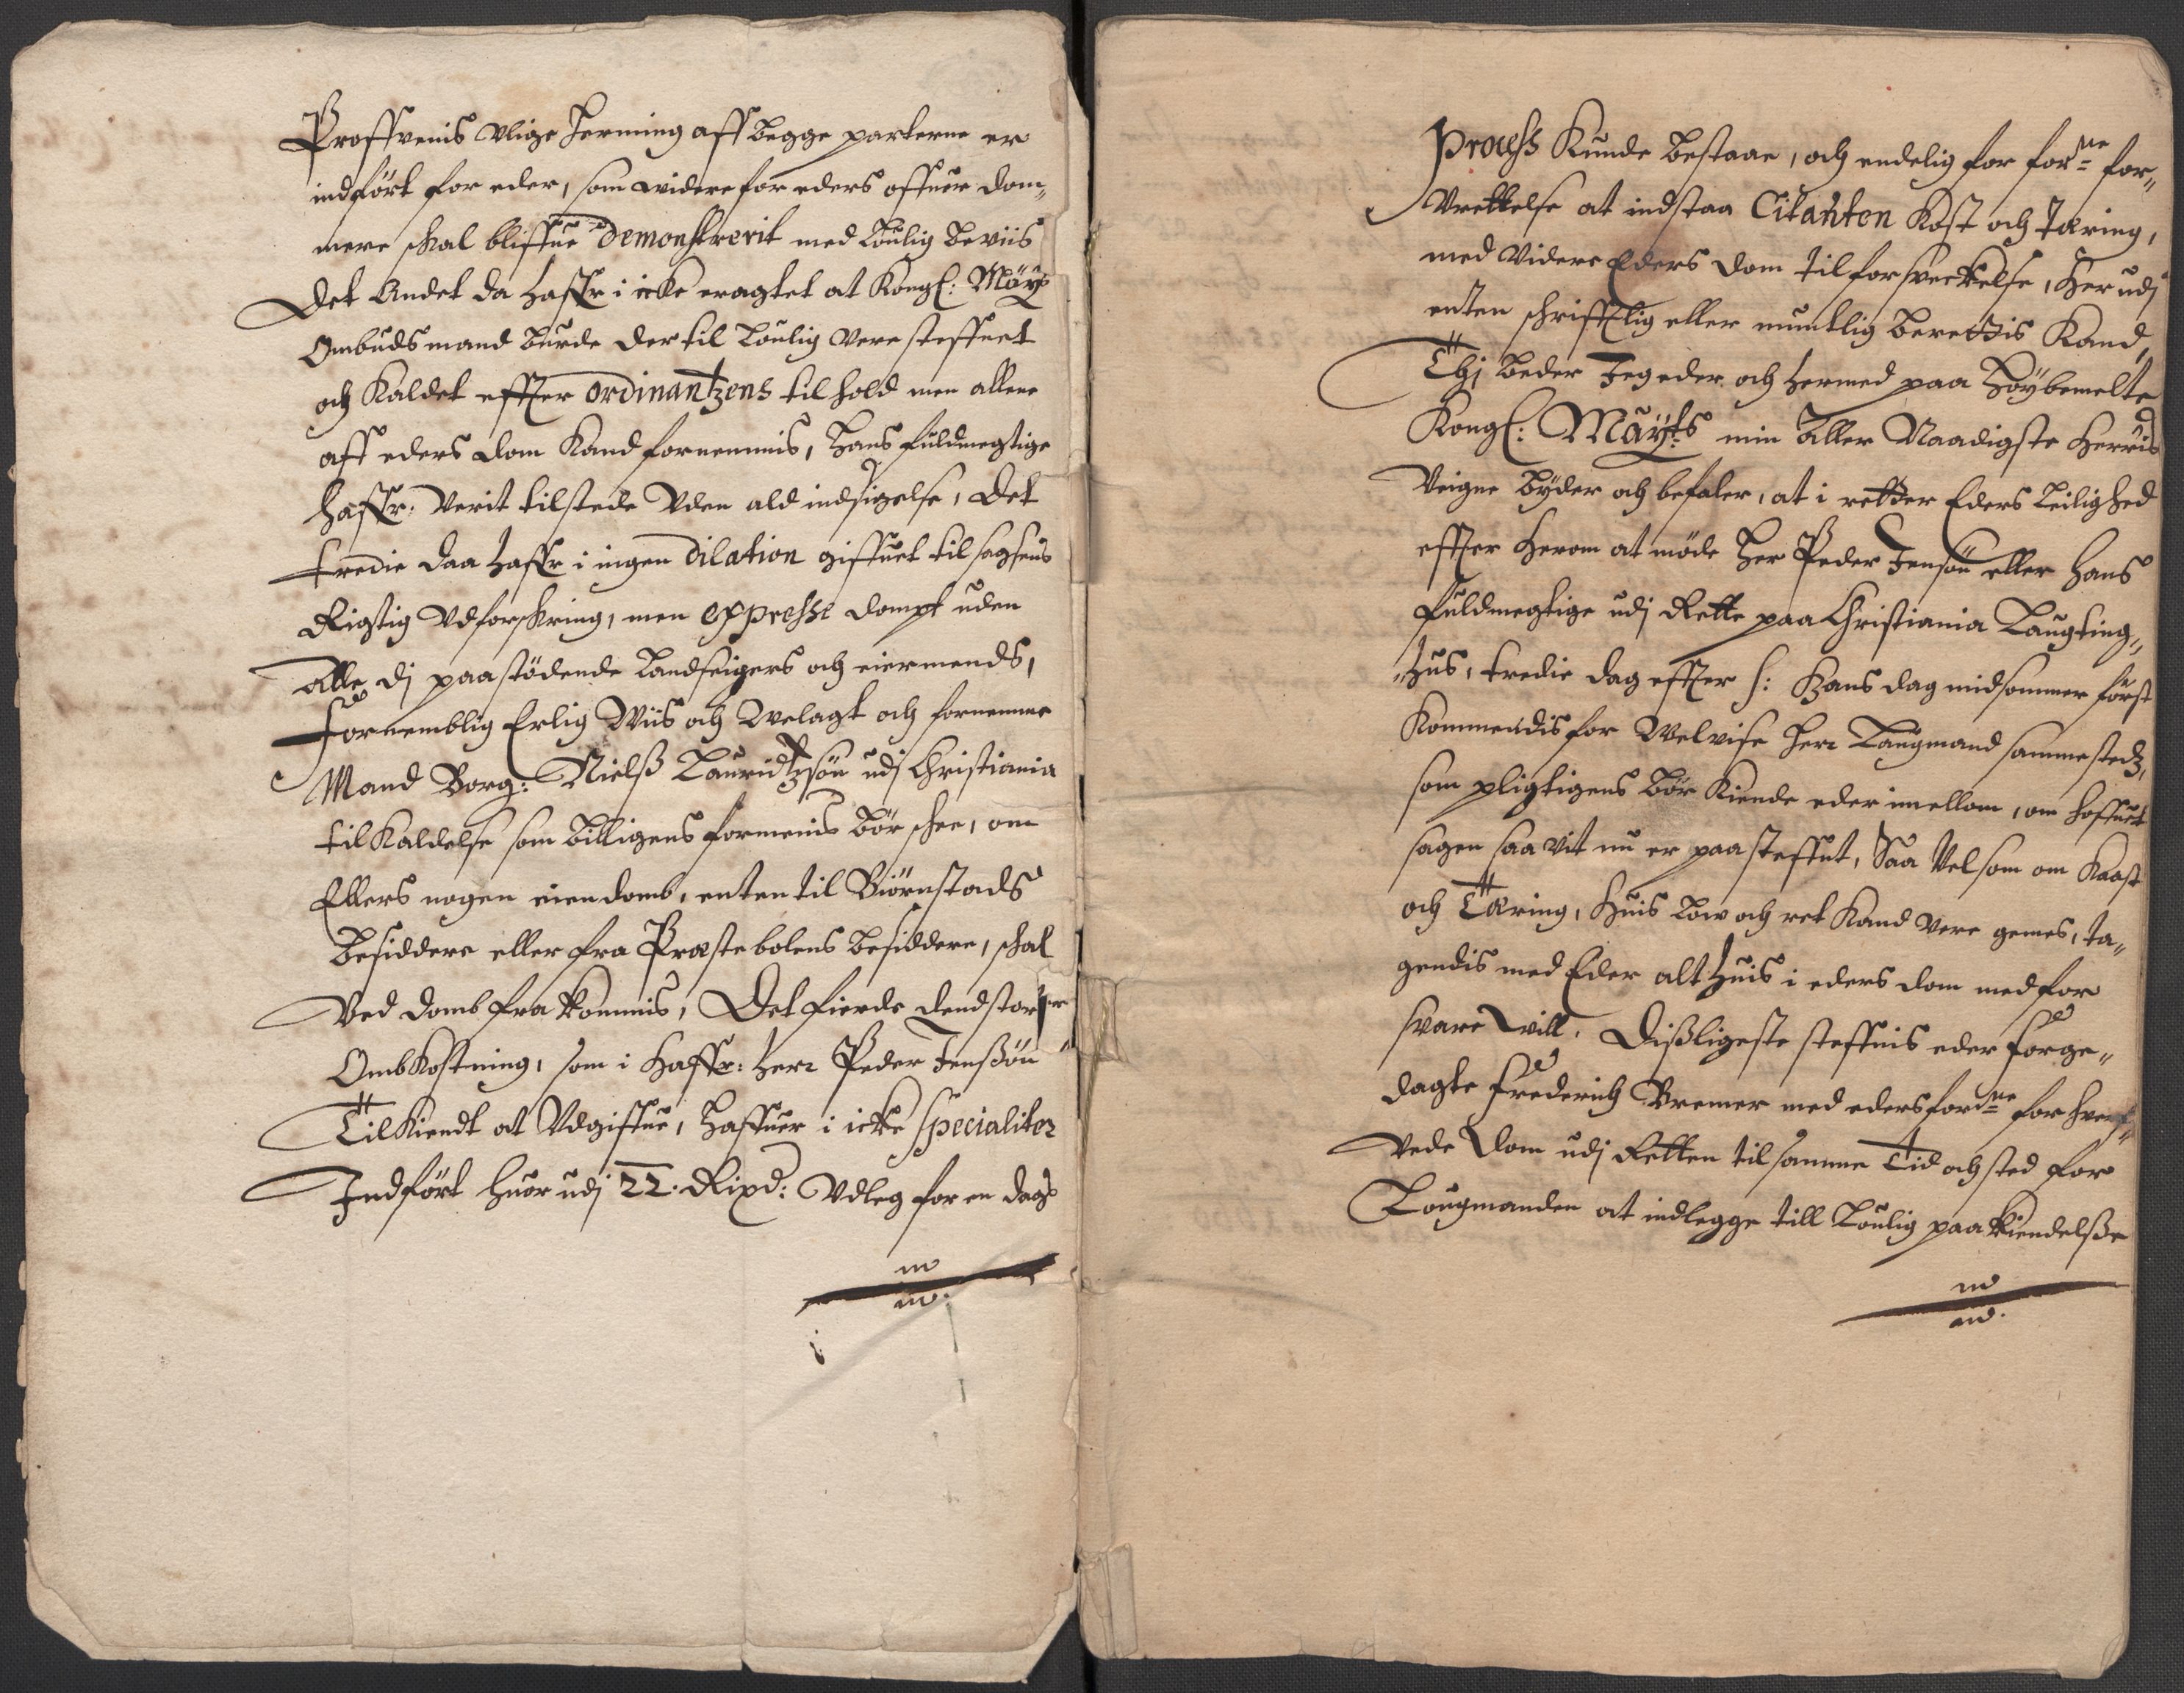 Proffvenis Vlige Herming aff begge parterne er
indført for eder, som widere for eders offuer dom„
mere schal bliffue Demonstrerit med Loulig beviis
Det Andet da haffr i icke eragtet at Kongl: Mäyß
Ombudsmand burde dertil Loulig vere steffnet
och Kaldet effter Ordinantzens tilhold men allene
aff eders dom Kand fornemmis, hans fuldmegtige
haffr: verit tilstede Vden ald indsigelse, Det
tredie daa haffr i ingen Dilation giffuet til sagsens
Rigtig Vdforskring, men Expresse dompt uden
alle dj paastødende Landseigers och eiermends,
Fornemblig Erlig Wiis och Welagt och fornemme
Mand Borg: Nielß Lauridtzsøn udj Christiania
til Kaldelse som billigens formenis bør schee, om
Ellers nogen eiendomb, enten til Biørnstads
besiddere eller fra Præstebolens besiddere, schal
Ved domb frakommis, Det fierde dend stor
Ombkostning, som i haffr: herr Peder Jenßøn
Tilkiendt at Vdgiffue, haffuer i icke specialiter
Indført huor udj 22. Rixd: Vdleg for en dags
m
m.
Process Kunde bestaae, och endelig for for:ne for„
Vrettelse at indstaa Citanten Kost och Tæring,
med videre Eders dom til forsverkelse, herudj
enten schrifftlig eller mundtlig berettis Kand,
Thj beder Jeg eder och hermed paa Høybemelte
Kongl: Mäyts min aller Naadigste Herris
Veigne byder och befaler, at i retter Eders Leilighed
effter herom at møde her Peder Jensøn eller hans
fuldmegtige udj Rette paa Christiania Laugting„
„hus, tredie dag effter S: Hans dag midsommer først
Kommendis for Welvise Herr Laugmand sammestedz,
som pligtigens bør Kiende eder imellom, om hoffuet
sagen saa vit nu er paasteffnt, Saa Vel som om Kaast
och Tæring, huis low och ret Kand vere gemes, ta„
gendis med Eder alt huis i eders dom med for
svare will. Dißligeste steffnis eder forge„
dagte Frederich Bremer med eders for:ne for hverf„
Vede dom udj Retten til samme Tid och sted for
Lougmanden at indlegge till Loulig paakiendelße
m
m.